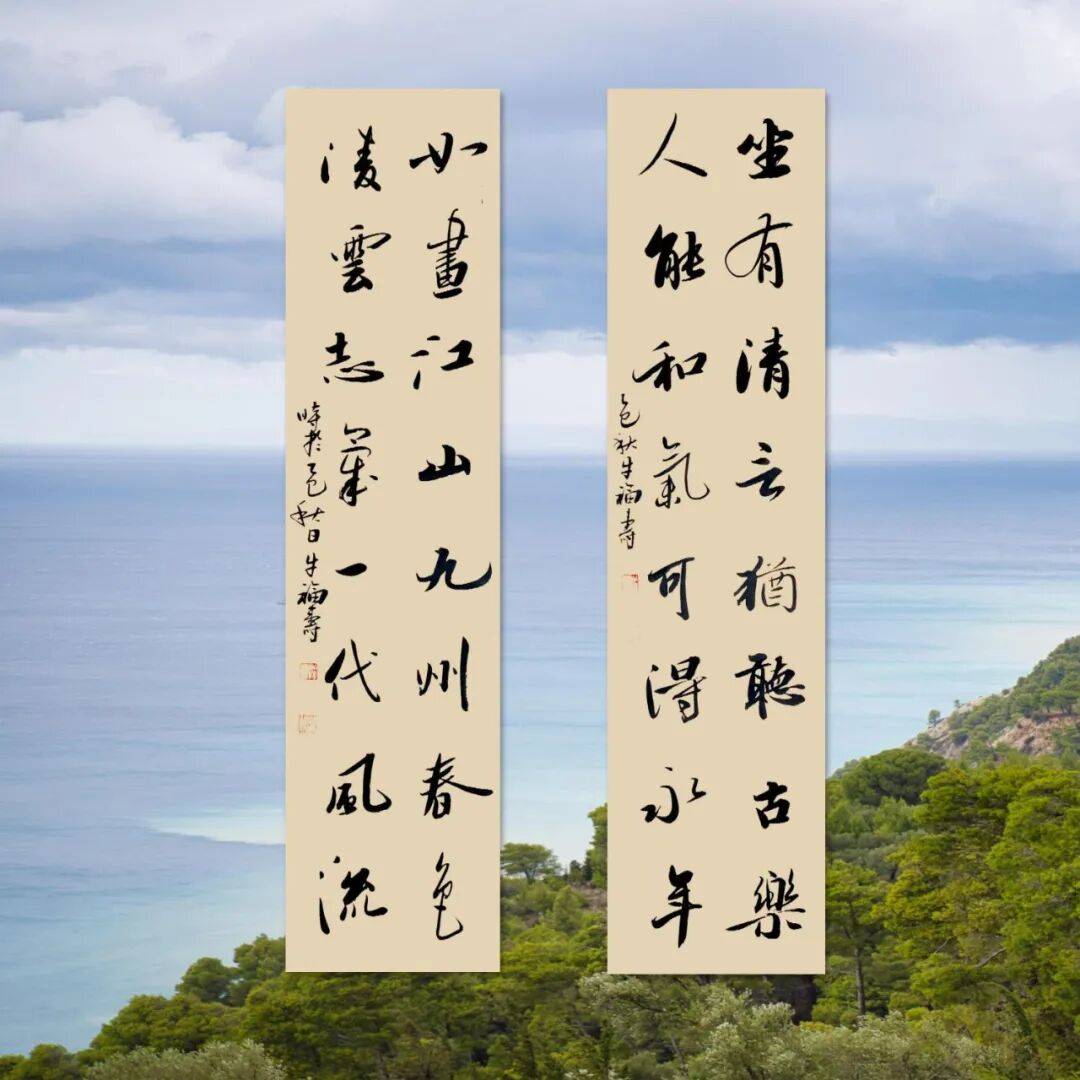 坐有清言猶聽古樂
人能和氣可得永年
乙巳秋牛福壽
如畫江山九州春色
凌雲志氣一代風流
時於乙巳秋日牛福壽